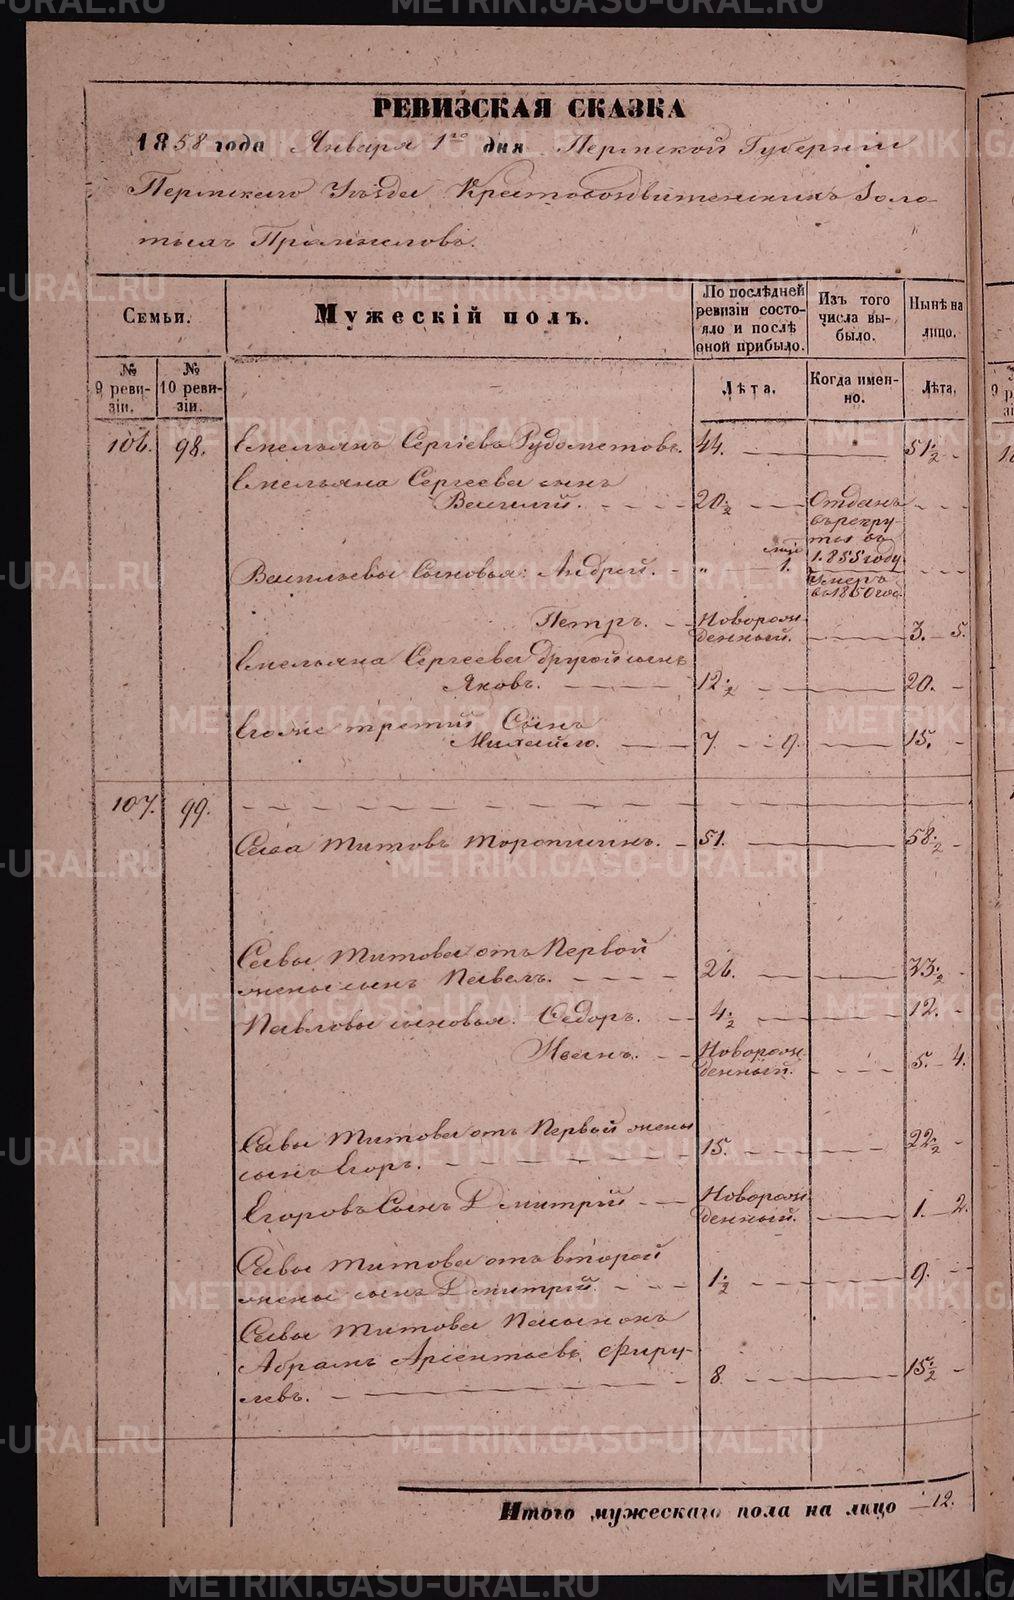 РЕВИЗСКАЯ СКАЗКА
1858 года Января 1го дня Пермской Губернiи
Пермскаго Уѣзда Крестовоздвиженскихъ Золо-
тыхъ Промысловъ.
Семьи.
Мужескiй полъ.
По послѣдней ревизiи состо-яло и послѣ оной прибыло.
Изъ того числа вы-было.
Нынѣ на лицо.
№ 9 реви-зiи.
№ 10 реви-зiи.
Лѣта.
Когда имен-но.
Лѣта.
106. 98. Емельянъ Сергiевъ Рудометовъ. 44. 51½
Емельяна Сергеева сынъ
Василий. 20½ Отданъ
въ рекру-
ты въ
1855 году
Васильевы Сыновья: Андрей. " 1. Умеръ
въ 1850 год.
Петръ. Новорож-
денный. 3. 5.
Емельяна Сергеева другой сынъ
Яковъ. 12½ 20.
Егоже третий Сынъ
Михайло. 7. 9. 15.
107. 99.
Сава Титовъ Торопицинъ. 51. 58½
Савы Титова отъ Первой
жены сынъ Павелъ. 26. 33½
Павловы сыновья: Федоръ. 4½ 12.
Иванъ. Новорож-
денный. 5. 4.
Савы Титова отъ Первой жены
сынъ Егоръ. 15. 22½
Егоровъ Сынъ Дмитрiй Новорож-
денный. 1. 2.
Савы Титова отъ второй
жены сынъ Дмитрiй. 1½ 9.
Савы Титова Пасынокъ
Абрамъ Фиру-
левъ. 8. 15½
Итого мужескаго пола на лицо 12.
METRIKI.GASO-URAL.RU